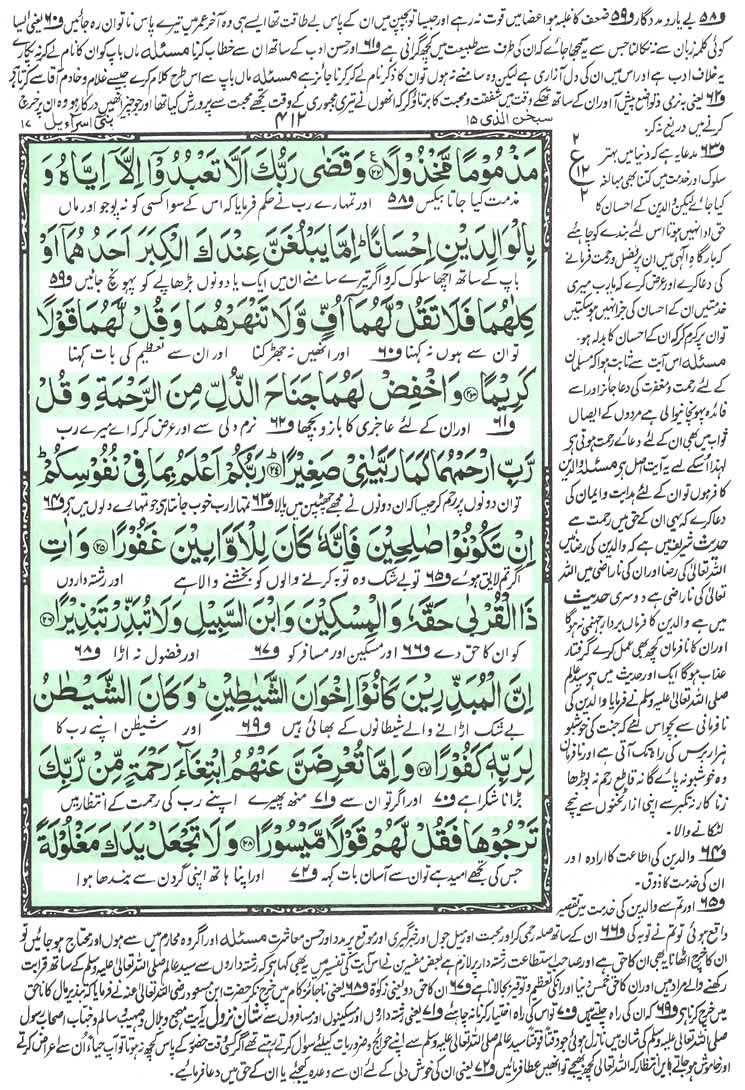 و۵۸ بے یار و مددگار و۵۹ ضعف کا غلبہ ہو اعضا میں قوت نہ رہے اور جیسا تو بچپن میں ان کے پاس بے طاقت تھا ایسے ہی وہ آخر عمر میں تیرے پاس ناتواں رہ جائیں و۶۰ یعنی ایسا
کوئی کلمہ زبان سے نہ نکالنا جس سے یہ سمجھا جائے کہ ان کی طرف سے طبیعت میں کچھ گرانی ہے و۶۱ اور حسن ادب کے ساتھ ان سے خطاب کرنا مسئلہ ماں باپ کو ان کا نام لے کر نہ پکارے
یہ خلاف ادب ہے اور اس میں ان کی دل آزاری ہے لیکن وہ سامنے نہ ہوں تو ان کا ذکر نام لے کر کرنا جائز ہے مسئلہ ماں باپ سے اس طرح کلام کرے جیسے غلام و خادم آقا سے کرتا ہے
و۶۲ یعنی بہ نرمی و تواضع پیش آ اور ان کے ساتھ تھکے وقت میں شفقت و محبت کا برتاؤ کر کہ انھوں نے تیری مجبوری کے وقت تجھے محبت سے پرورش کیا تھا اور جو چیز انھیں درکار ہو وہ ان پر خرچ
کرنے میں دریغ نہ کر
سبحٰن الذی ۱۵
۴۱۲
بنی اسرآءیل ۱۷
مَذْمُوْمًا مَّخْذُوْلًا ﴿۲۲﴾ ع وَ قَضٰى رَبُّكَ اَلَّا تَعْبُدُوْۤا اِلَّاۤ اِیَّاهُ وَ
مذمت کیا جاتا بیکس و۵۸ اور تمہارے رب نے حکم فرمایا کہ اس کے سوا کسی کو نہ پوجو اور ماں
بِالْوَالِدَیْنِ اِحْسَانًاؕ اِمَّا یَبْلُغَنَّ عِنْدَكَ الْكِبَرَ اَحَدُهُمَاۤ اَوْ
باپ کے ساتھ اچھا سلوک کرو اگر تیرے سامنے ان میں ایک یا دونوں بڑھاپے کو پہونچ جائیں و۵۹
كِلٰهُمَا فَلَا تَقُلْ لَّهُمَاۤ اُفٍّ وَّ لَا تَنْهَرْهُمَا وَ قُلْ لَّهُمَا قَوْلًا
تو ان سے ہوں نہ کہنا و۶۰ اور انھیں نہ جھڑکنا اور ان سے تعظیم کی بات کہنا
كَرِیْمًا ﴿۲۳﴾ وَ اخْفِضْ لَهُمَا جَنَاحَ الذُّلِّ مِنَ الرَّحْمَةِ وَ قُلْ
و۶۱ اور ان کے لئے عاجزی کا بازو بچھا و۶۲ نرم دلی سے اور عرض کر کہ اے میرے رب
رَّبِّ ارْحَمْهُمَا كَمَا رَبَّیٰنِیْ صَغِیْرًا ﴿۲۴﴾ رَبُّكُمْ اَعْلَمُ بِمَا فِیْ نُفُوْسِكُمْؕ
تو ان دونوں پر رحم کر جیسا کہ ان دونوں نے مجھے چھٹپن میں پالا و۶۳ تمہارا رب خوب جانتا ہے جو تمہارے دلوں میں ہے و۶۴
اِنْ تَكُوْنُوْا صٰلِحِیْنَ فَاِنَّهٗ كَانَ لِلْاَوَّابِیْنَ غَفُوْرًا ﴿۲۵﴾ وَ اٰتِ
اگر تم لائق ہوئے و۶۵ تو بے شک وہ توبہ کرنے والوں کو بخشنے والا ہے اور رشتہ داروں
ذَا الْقُرْبٰى حَقَّهٗ وَ الْمِسْكِیْنَ وَ ابْنَ السَّبِیْلِ وَ لَا تُبَذِّرْ تَبْذِیْرًا ﴿۲۶﴾
کو ان کا حق دے و۶۶ اور مسکین اور مسافر کو و۶۷ اور فضول نہ اڑا و۶۸
اِنَّ الْمُبَذِّرِیْنَ كَانُوْۤا اِخْوَانَ الشَّیٰطِیْنِؕ وَ كَانَ الشَّیْطٰنُ
بے شک اڑانے والے شیطانوں کے بھائی ہیں و۶۹ اور شیطن اپنے رب کا
لِرَبِّهٖ كَفُوْرًا ﴿۲۷﴾ وَ اِمَّا تُعْرِضَنَّ عَنْهُمُ ابْتِغَآءَ رَحْمَةٍ مِّنْ رَّبِّكَ
بڑا ناشکرا ہے و۷۰ اور اگر تو ان سے و۷۱ منھ پھیرے اپنے رب کی رحمت کے انتظار میں
تَرْجُوْهَا فَقُلْ لَّهُمْ قَوْلًا مَّیْسُوْرًا ﴿۲۸﴾ وَ لَا تَجْعَلْ یَدَكَ مَغْلُوْلَةً
جس کی تجھے امید ہے تو ان سے آسان بات کہہ و۷۲ اور اپنا ہاتھ اپنی گردن سے بندھا ہوا
۲
ع
۱۲
۲
و۶۳ مدعا یہ ہے کہ دنیا میں بہتر
سلوک اور خدمت میں کتنا بھی مبالغہ
کیا جائے لیکن والدین کے احسان کا
حق ادا نہیں ہوتا اس لئے بندے کو چاہئے
کہ بارگاہ الٰہی میں ان پر فضل و رحمت فرمانے
کی دعا کرے اور عرض کرے کہ یارب میری
خدمتیں ان کے احسان کی جزا نہیں ہو سکتیں
تو ان پر کرم کر کہ ان کے احسان کا بدلہ ہو۔
مسئلہ اس آیت سے ثابت ہوا کہ مسلمان
کے لئے رحمت و مغفرت کی دعا جائز اور اسے
فائدہ پہونچانیوالی ہے مردوں کے ایصال
ثواب میں بھی ان کے لئے دعائے رحمت ہوتی ہے
لہٰذا اسکے لئے یہ آیت اصل ہے مسئلہ والدین
کافر ہوں تو ان کے لئے ہدایت و ایمان کی
دعا کرے کہ یہی ان کے حق میں رحمت ہے
حدیث شریف میں ہے کہ والدین کی رضا میں
اللہ تعالیٰ کی رضا اور ان کی ناراضی میں اللہ
تعالیٰ کی ناراضی ہے دوسری حدیث
میں ہے والدین کا فرماں بردار جہنمی نہ ہوگا
اور ان کا نافرمان کچھ بھی عمل کرے گرفتار
عذاب ہوگا ایک اور حدیث میں ہے سید عالم
صلی اللہ تعالیٰ علیہ وسلم نے فرمایا والدین کی
نافرمانی سے بچو اس لئے کہ جنت کی خوشبو
ہزار برس کی راہ تک آتی ہے اور نافرمان
وہ خوشبو نہ پائے گا نہ قاطع رحم نہ بوڑھا
زناکار نہ تکبر سے اپنی ازار ٹخنوں سے نیچے
لٹکانے والا۔
و۶۴ والدین کی اطاعت کا ارادہ اور
ان کی خدمت کا ذوق۔
و۶۵ اور تم سے والدین کی خدمت میں تقصیر
واقع ہوئی تو تم نے توبہ کی و۶۶ ان کے ساتھ صلہ رحمی کر اور محبت اور میل جول اور خبر گیری اور موقع پر مدد اور حسن معاشرت مسئلہ اور اگر وہ محارم میں سے ہوں اور محتاج ہو جائیں تو
ان کا خرچ اٹھانا یہ بھی ان کا حق ہے اور صاحب استطاعت رشتہ دار پر لازم ہے بعض مفسرین نے اس آیت کی تفسیر میں یہ بھی کہا ہے کہ رشتہ داروں سے سید عالم صلی اللہ تعالیٰ علیہ وسلم کے ساتھ قرابت
رکھنے والے مراد ہیں اور ان کا حق خمس دینا اور انکی تعظیم و توقیر بجا لانا ہے و۶۷ ان کا حق دو یعنی زکوٰۃ و۶۸ یعنی ناجائز کام میں خرچ نہ کر حضرت ابن مسعود رضی اللہ تعالیٰ عنہ نے فرمایا کہ تبذیر مال کا ناحق
میں خرچ کرنا ہے و۶۹ کہ ان کی راہ چلتے ہیں و۷۰ تو اس کی راہ اختیار کرنا نہ چاہئے و۷۱ یعنی رشتہ داروں اور مسکینوں اور مسافروں سے شان نزول یہ آیت مہجع و بلال و صہیب و سالم و خباب اصحاب رسول
صلی اللہ تعالیٰ علیہ وسلم کی شان میں نازل ہوئی جو وقتاً فوقتاً سید عالم صلی اللہ تعالیٰ علیہ وسلم سے اپنے حوائج و ضروریات کیلئے سوال کرتے رہتے تھے اگر کسی وقت حضور کے پاس کچھ نہ ہوتا تو آپ حیاءً ان سے اعراض کرتے
اور خاموش ہو جاتے بایں انتظار کہ اللہ تعالیٰ کچھ بھیجے تو انھیں عطا فرمائیں و۷۲ یعنی ان کی خوش دلی کے لئے ان سے وعدہ کیجئے یا ان کے حق میں دعا فرمائیے۔